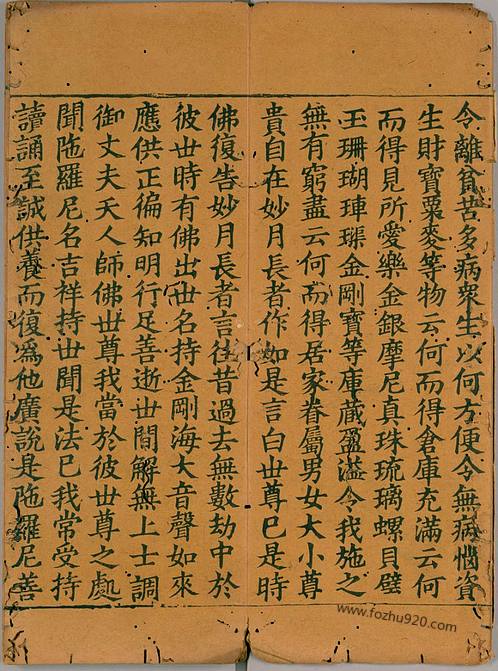 令離貧苦多病衆生以何方便令無病惱資
生財寶粟麥等物云何而得倉庫充滿云何
而得見所愛樂金銀摩尼真珠琉璃螺貝璧
玉珊瑚琗璖金剛寶等庫藏盈溢令我施之
無有窮盡云何而得居家眷屬男女大小尊
貴自在妙月長者作如是言白世尊已是時
佛復告妙月長者言往昔過去無數劫中於
彼世時有佛出世名持金剛海大音聲如來
應供正徧知明行足善逝世間解無上士調
御丈夫天人師佛世尊我當於彼世尊之處
聞陁羅尼名吉祥持世聞是法已我常受持
讀誦至誠供養而復爲他廣說是陁羅尼善
www.fozhu920.com